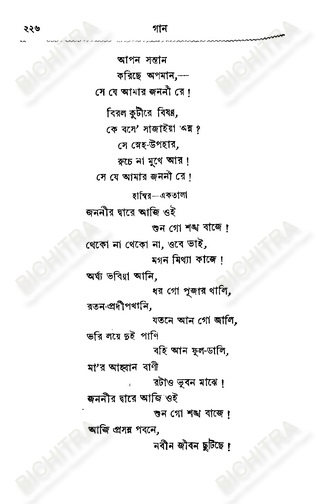 ২২৬ গান
আপন সন্তান
করিছে অপমান,—
সে যে আমার জননী রে !
বিরল কুটীরে বিষণ্ণ,
কে বসে' সাজাইয়া অন্ন ?
সে স্নেহ-উপহার,
রুচে না মুখে আর !
সে যে আমার জননী রে !
হাম্বির—একতালা
জননীর দ্বারে আজি ওই
শুন গো শঙ্খ বাজে !
থেকো না থেকো না, ওবে ভাই,
মগন মিথ্যা কাজে !
অর্ঘ্য ভবিয়া আনি,
ধর গো পূজার থালি,
রতন-প্রদীপখানি,
যতনে আন গো জালি,
ভরি লয়ে দুই পাণি
বহি আন ফুল-ডালি,
মা'র আহ্বান বাণী
রটাও ভুবন মাঝে !
জননীর দ্বারে আজি ওই
শুন গো শঙ্খ বাজে !
আজি প্রসন্ন পবনে,
নবীন জীবন ছুটিছে !
BICHITRA
BICHITRA
BICHITRA
BICHITRA
BICHITRA
BICHITRA